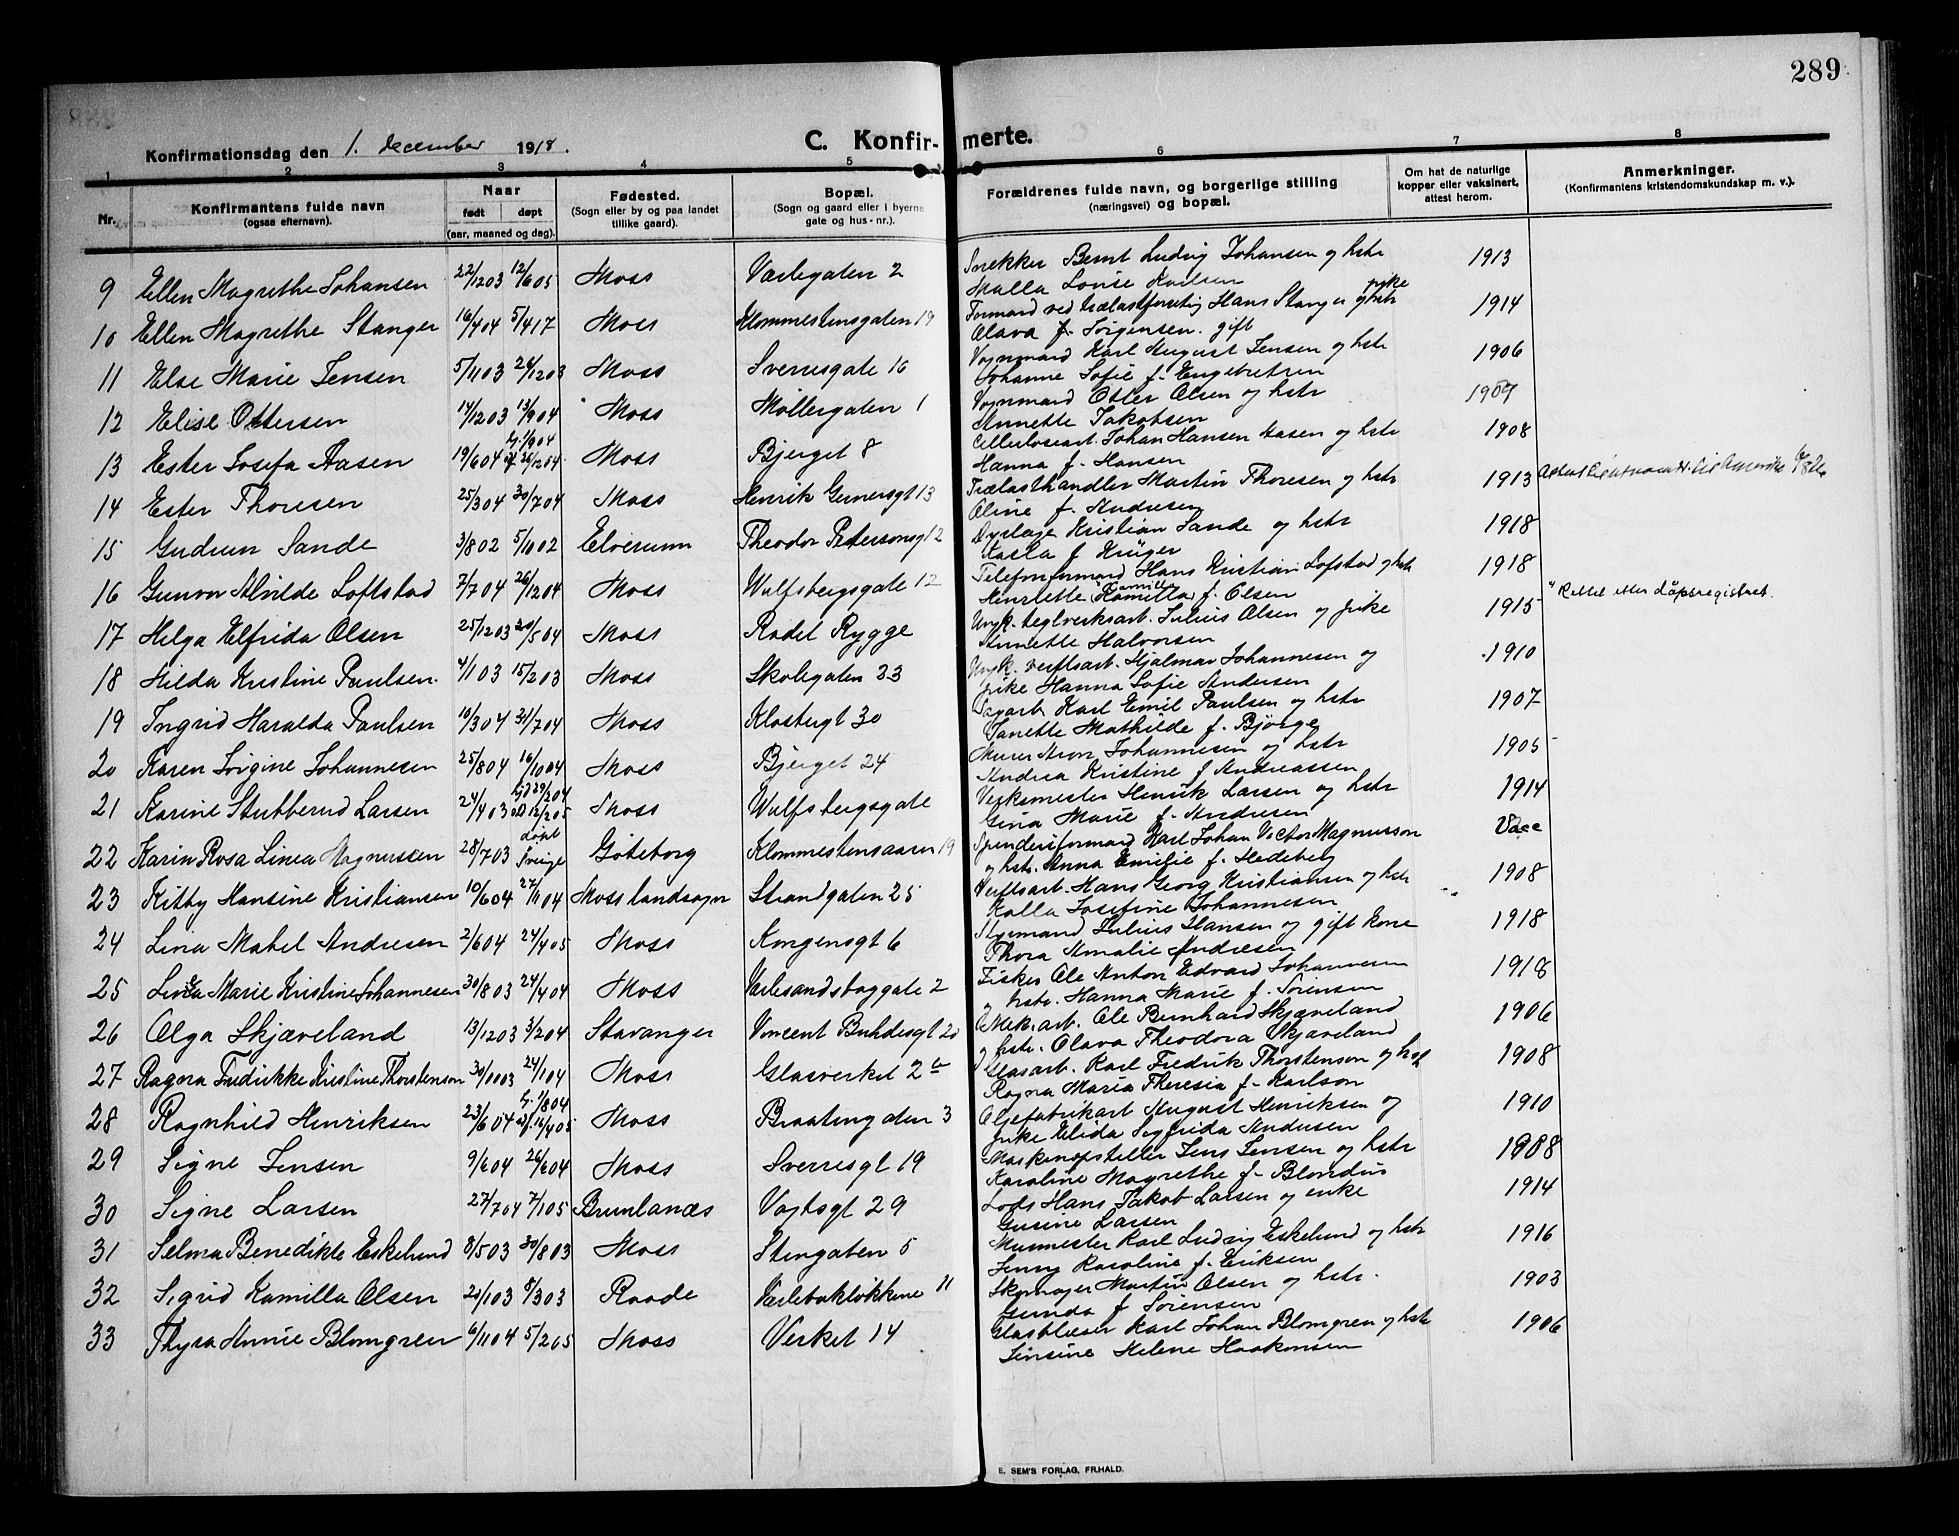 289
Konfirmationsdag den 1. december 1918.
C. Konfir-merte.
1 2 3 4 5 6 7 8
Nr. Konfirmantens fulde navn (ogsaa efternavn). Naar født døpt (aar, maaned og dag). Fødested. (Sogn eller by og paa landet tillike gaard). Bopæl. (Sogn og gaard eller i byerne gate og hus-nr.). Forældrenes fulde navn, og borgerlige stilling (næringsvei) og bopæl. Om hat de naturlige kopper eller vaksinert, attest herom. Anmerkninger. (Konfirmantens kristendomskundskap m. v.).
9 Ellen Magrethe Johansen 22/1203 12/605 Moss Varlegaten 2 Snekker Bernt Ludvig Johansen og hstr 1913
Malla Lovise Karlsen
10 Ellen Magrethe Stanger 16/404 5/417 Moss Klommestensgaten 19 Formand ved Hans Stanger og 1914
Olava f. Jørgensen. gift
11 Else Marie Jensen 5/1103 26/1203 Moss Sverresgate 16 Vognmand Karl August Jensen og hstr 1906
Johanne Sofie f. Engebretsen
12 Elise Ottersen 14/1203 13/904 Moss Møllergaten 1 Vognmand Otter Olsen og hstr 1907
Annette Jakobsen
13 Ester Josefa Aasen 19/604 Moss Bjerget 8 Cellulosearb. Johan Hansen Aasen og hstr 1908
Hanna f. Hansen
14 Ester Thoresen 25/304 30/704 Moss Henrik Gernersgt 13 Trælasthandler Martin Thoresen og hstr 1913
Oline f. Andresen
15 Gudrun Sande 3/802 5/1002 Elverum Theodor Petersonsgt 2 Dyrlæge Kristian Sande og hstr 1918
Kasla f. Krüger
16 Gunvor Alvilde Loftstad 7/704 26/1204 Moss Wulfsbergsgate 12 Telefonformand Hans Kristian Lofstad og hstr 1918
Henriette Kamilla f. Olsen "Rettet etter dåpsregistret.
17 Helga Elfrida Olsen 25/1203 20/504 Moss Rodet Rygge Ungk. teglverksarb. Julius Olsen og pike 1915
Annette Halvorsen
18 Hilda Kristine Paulsen. 4/103 15/203 Moss Skolegaten 23 Ungk. verftsarb. Hjalmar Johannesen og 1910
pike Hanna Sofie Andersen
19 Ingrid Haralda Paulsen 10/304 31/704 Moss Klostergt 30 Dagarb. Karl Emil Paulsen og hstr 1907
Janette Mathilde f. Bjørge
20 Karen Jørgine Johannesen 25/804 16/1004 Moss Bjerget 24 Murer Aron Johannesen og hstr 1905
Andrea Kristine f Andreassen
21 Karine Stubberud Larsen 24/403 Moss Wulfsbergsgate Verksmester Henrik Larsen og hstr 1914
Gina Marie f. Andresen
22 Karin Rosa Linea Magnussen 28/703 Døpt Sverige Gøteborg Klommestensaasen 19 Karl Johan Victor Magnusson Vacc
og hstr. Anna Emilie f. Hedeberg
23 Kitty Hansine Kristiansen 10/604 27/1104 Moss landsogn Strandgaten 25 Verftsarb. Hans Georg Kristiansen og hstr 1908
Kalla Josefine Johannesen
24 Lina Mabel Andresen 2/604 24/405 Moss Kongensgt 6 Styrmand Julius Hansen og gift kone 1918
Thora Amalie Andresen
25 Linea Marie Kristine Johannesen 30/803 24/404 Moss Varlesandsbaggate 2 Fisker Ole Anton Edvard Johannesen 1918
og hstr. Hanna Marie f. Sørensen
26 Olga Skjæveland 13/1203 3/204 Stavanger Vincent Buddesgt 20 Mek.arb. Ole Bernhard Skjæveland 1906
og hstr. Olava Theodora Skjæveland
27 Ragna Fredrikke Kristine Thorstenson 30/1003 24/104 Moss Glasverket 2 Glasarb. Karl Fredrik Thorstenson og hst 1908
Ragna Maria Theresia f. Karlson
28 Ragnhild Henriksen 23/604 Moss Braatengaden 3 Oljefabrikarb August Henriksen og 1910
pike Elida Sigfrida Andersen
29 Signe Jensen 9/604 26/604 Moss Sverresgt 19 Maskinopstiller Jens Jensen og hstr 1908
Karoline Magrethe f. Blondin
30 Signe Larsen 27/704 7/105 Brunlanæs Vogtsgt 29 Lods Hans Jakob Larsen og enke 1914
Gusine Larsen
31 Selma Benedikte Eskelund 8/503 30/803 Moss Stengaten 5 Murmester Karl Ludvig Eskelund og hstr 1916
Jenny Karoline f. Eriksen
32 Sigrid Kamilla Olsen 20/103 8/303 Raade Varlebakløkkene 11 Skomager Martin Olsen og hstr. 1903
Gunda f Sørensen
33 Thyra Annie Blomgren 6/1104 5/205 Moss Verket 14 Glasblæser Karl Johan Blomgren og hstr 1906
Jensine Helene Haakonsen
E. SEM'S FORLAG, FR.HALD.